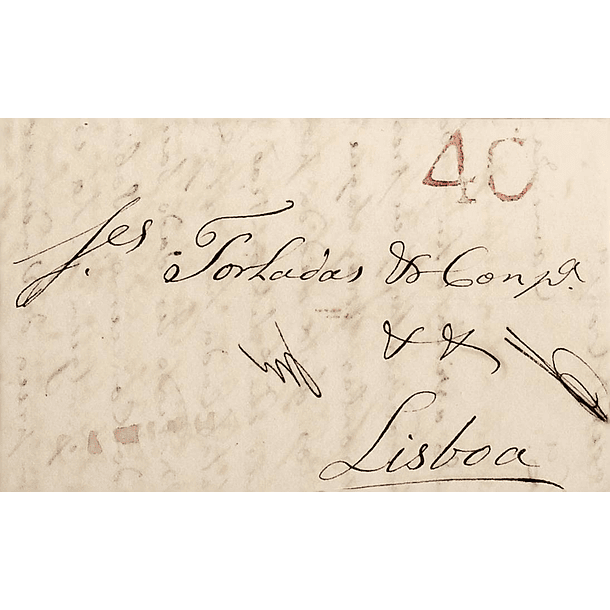 40
S.es Torladas & Comp.a
& &
Lisboa